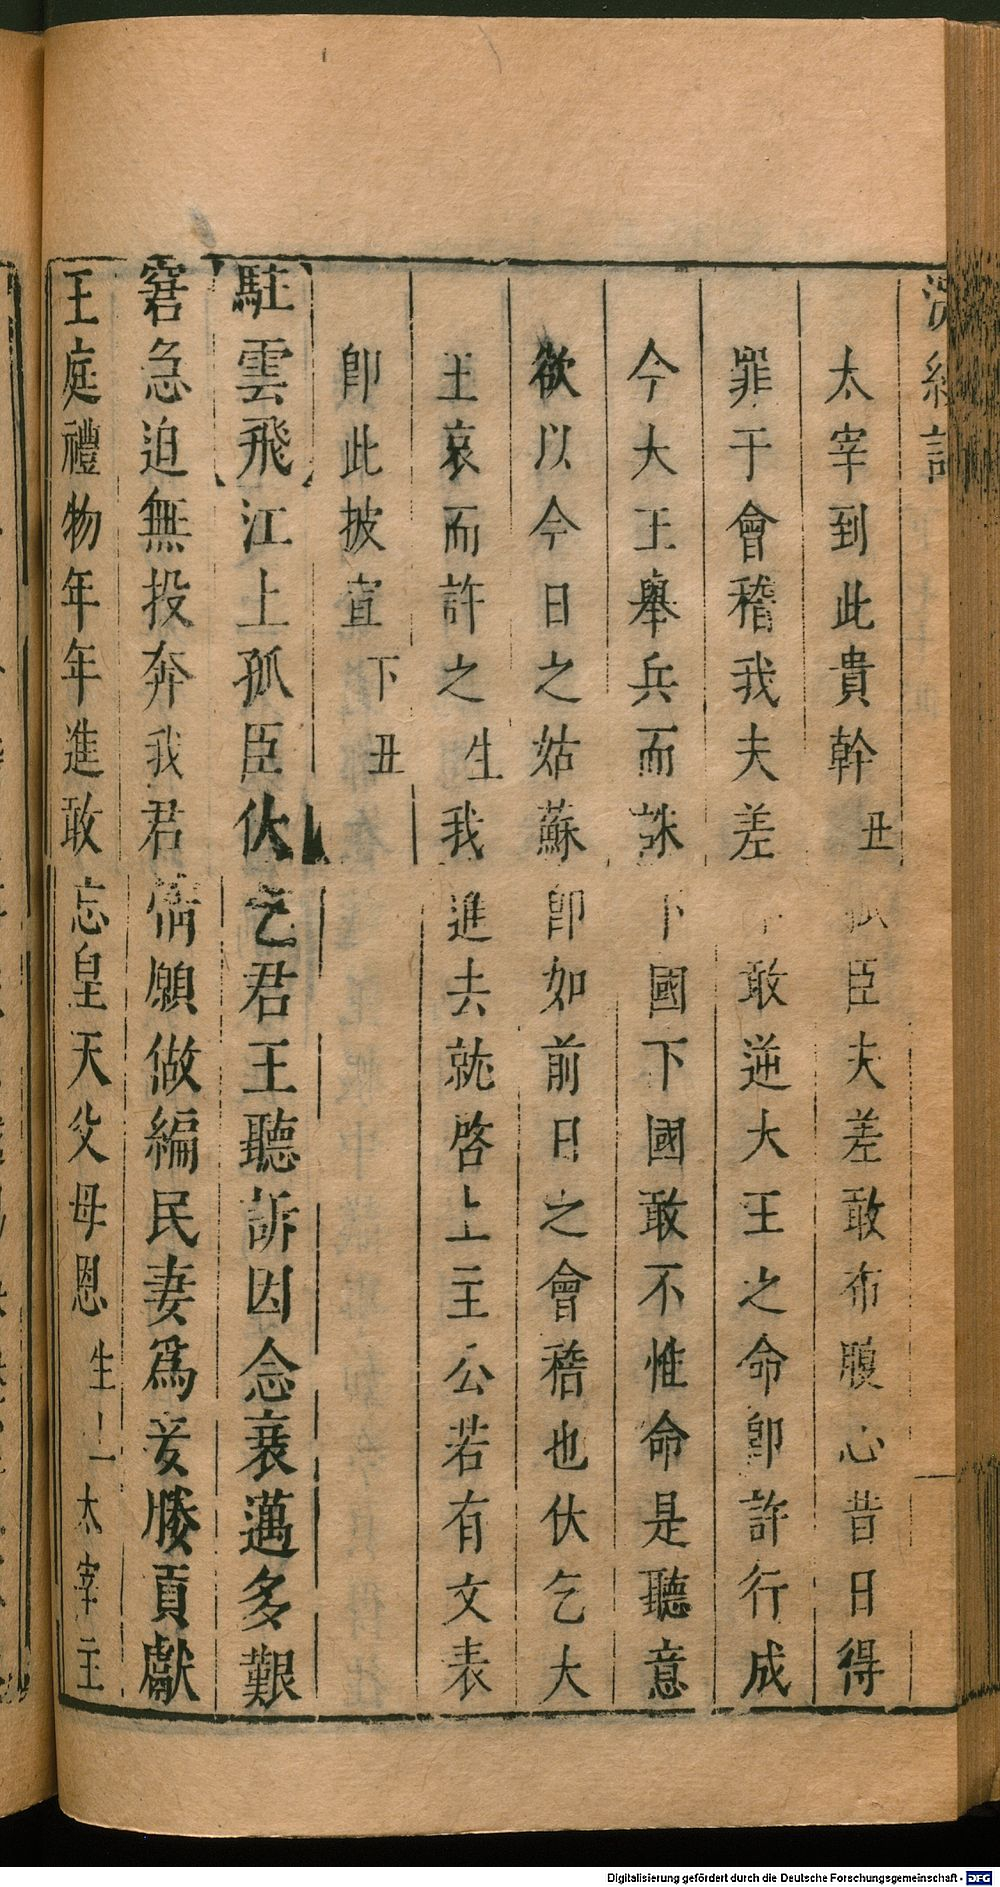 浣紗記
太宰到此貴幹 丑 孤臣夫差敢布腹心昔日得
罪于會稽我夫差 敢逆大王之命卽許行成
今大王舉兵而誅下國下國敢不惟命是聽意
欲以今日之姑蘇卽如前日之會稽也伏乞大
王哀而許之 生 我進去就啓上主公若有文表
卽此披宣 下 丑
駐雲飛 江上孤臣伏乞君王聽訴因念衰邁多艱
窘急迫無投奔我君情願做編民妻爲妾媵貢獻
王庭禮物年年進敢忘皇天父母恩 生上 太宰主
Digitalisierung gefördert durch die Deutsche Forschungsgemeinschaft - DFG